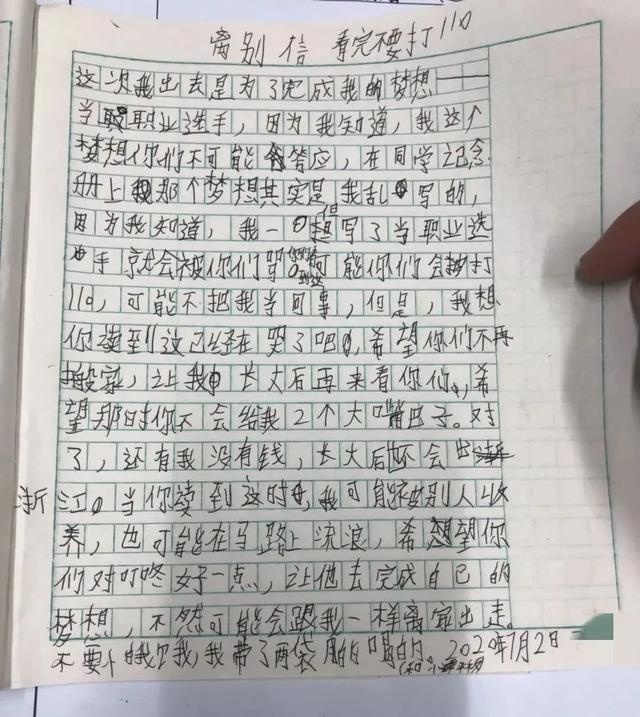 离别信 看完不要打110
这次我出去是为了完成我的梦想——
当职业选手，因为我知道，我这个
梦想你们不可能答应，在同学记念
册上我那个梦想其实是我乱写的，
因为我知道，我一但写了当职业选
手就会被你们骂。可能你们会打
110，可能不把我当回事，但是，我想
你读到这已经在哭了吧，希望你们不再
搬家，让我长大后再来看你们，希
望那时你不会给我2个大嘴巴子。对
了，还有我没有钱，长大后还会出
浙江。当你读到这时，我可能被别人收
养，也可能在马路上流浪，希望你
们对叮咚好一点，让他去完成自己的
梦想，不然可能会跟我一样离家出走。
不要我，我带了两袋的喝的 2020年7月2日